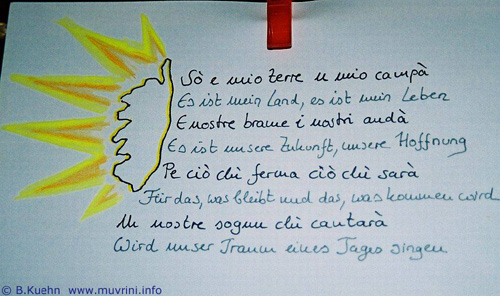 Sò e mio terre u mio campà
Es ist mein Land, es ist mein Leben
E nostre brame i nostri andà
Es ist unsere Zukunft, unsere Hoffnung
Pe ciò chì ferma ciò chì sarà
Für das, was bleibt und das, was kommen wird
Un nostre sognu chì cantarà
Wird unser Traum eines Tages singen
© B.Kuehn www.muvrini.info